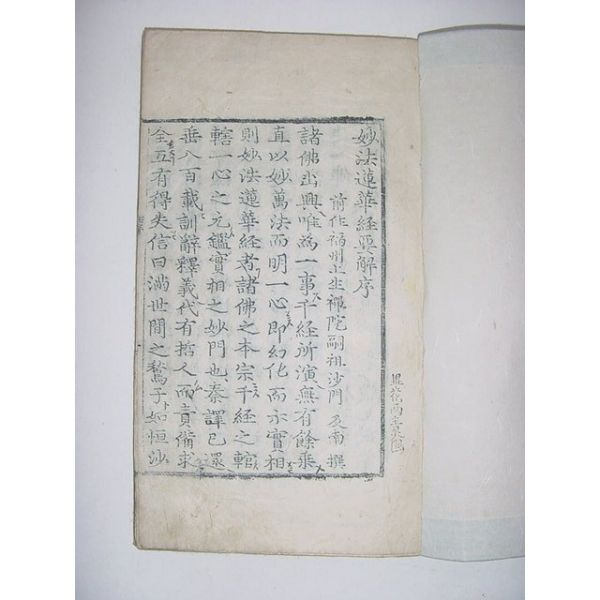 妙法蓮華經要解序
前住福州上生禪院嗣祖沙門及南撰
諸佛出興唯為一事千經所演無有餘乗
直以妙萬法而明一心即幻化而示實相
則妙法蓮華經者諸佛之本宗千經之轄
轄一心之元鑑實相之妙門也秦譯已還
垂八百載訓辭釋義代有哲人而責備求
全互有得失信曰滿世間之鶖子如恒沙